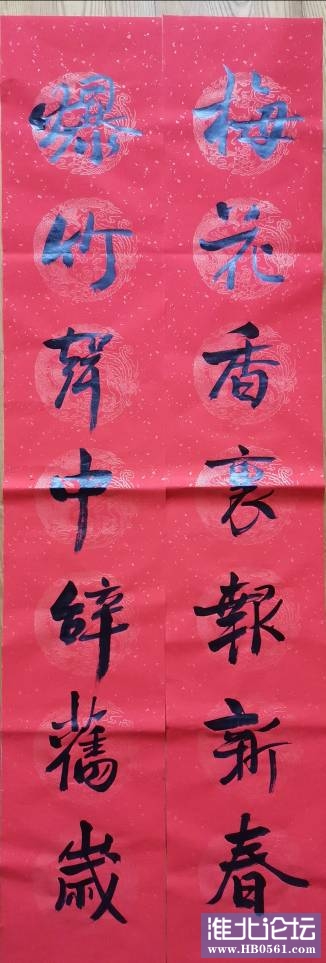 梅花香裏報新春
爆竹聲中辭舊歲
淮北论坛
www.HB0561.com